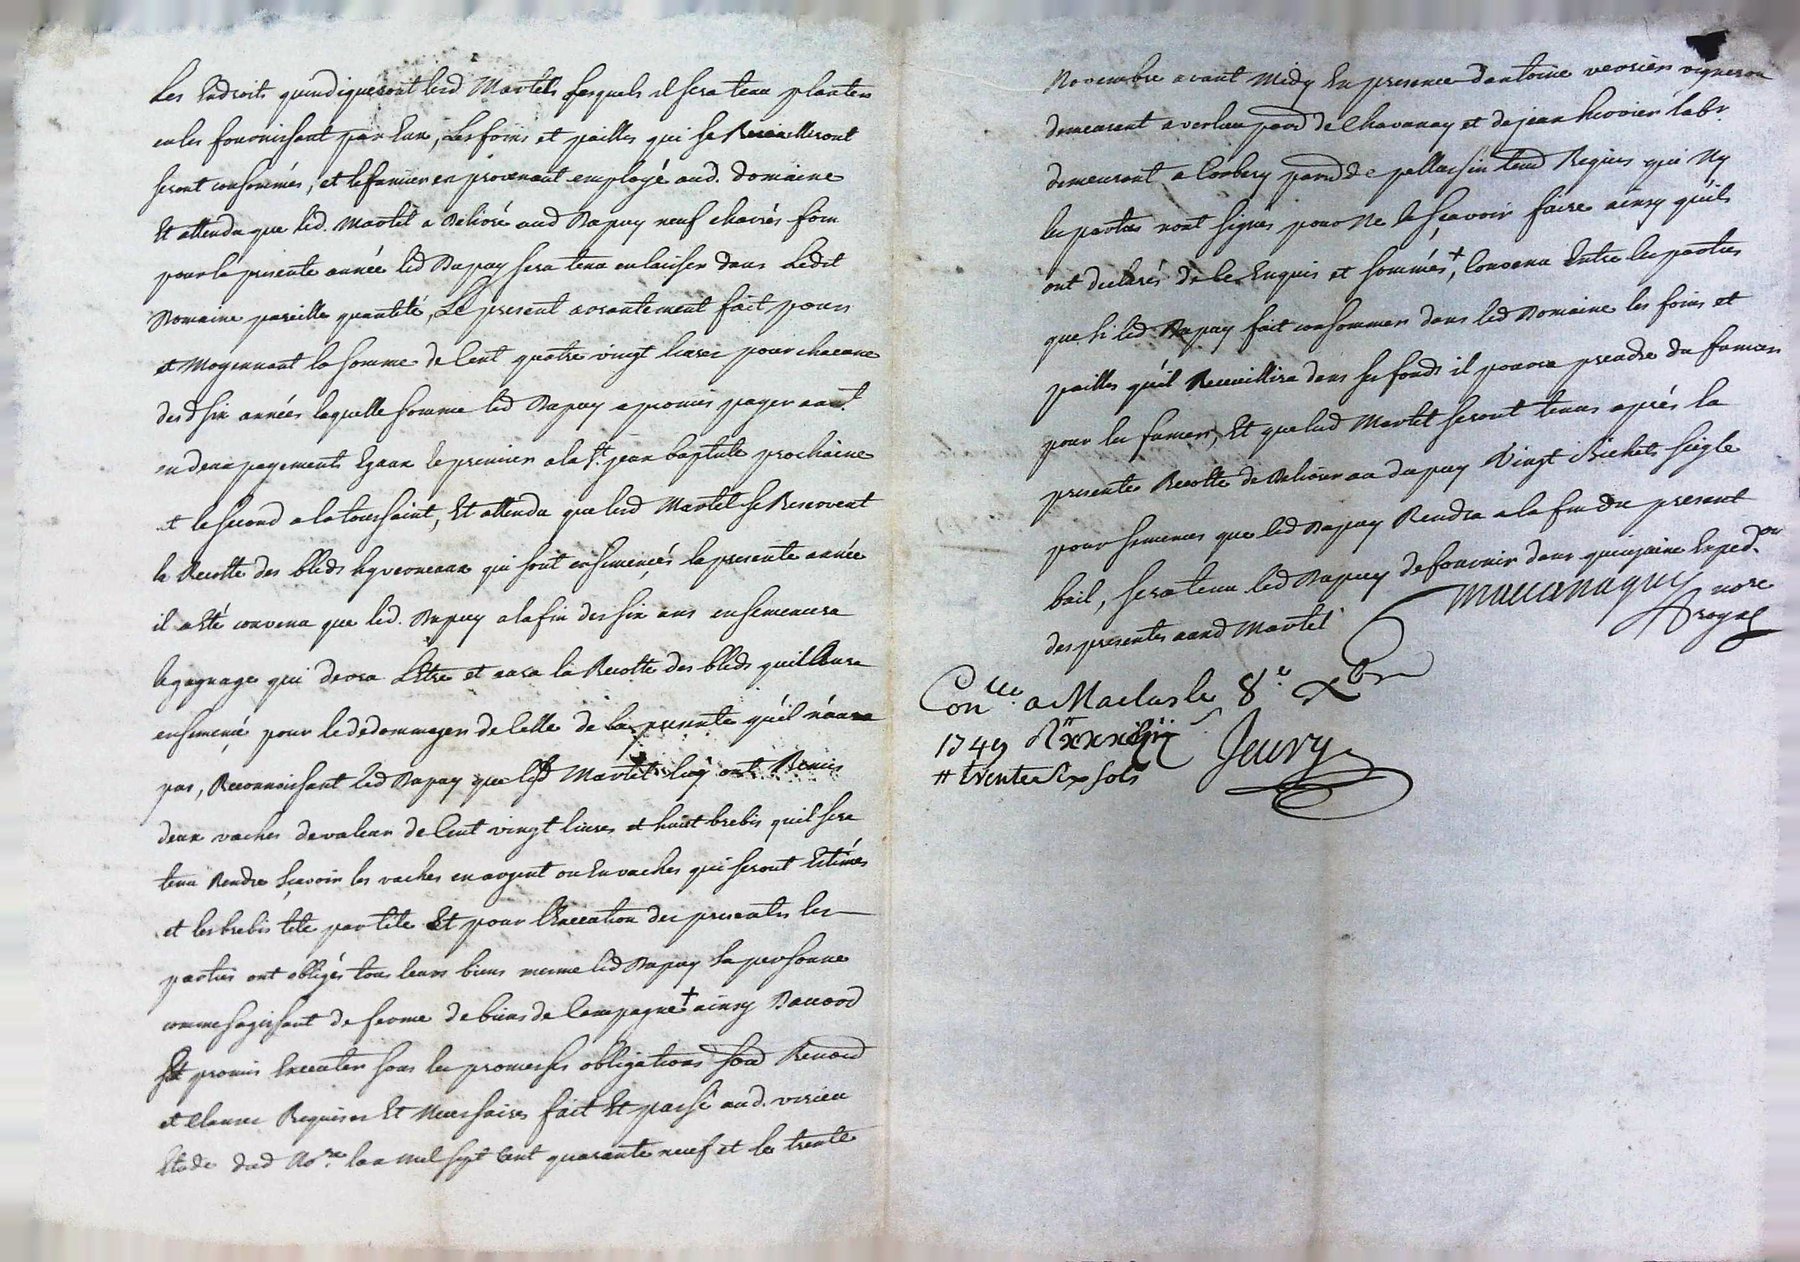 les Endroits qu'indiqueront lesd Martels lesquels il sera tenu planter
en les fournissant par Eux, Les foins et pailles qui se Recueilleront
seront consommés, et le fumier en provenant employé aud. domaine
Et attendu que led. Martel a Delivré aud Dupuy neuf charés foin
pour la presente année led Dupuy sera tenu en laisser dans Ledit
Domaine pareille quantité, Le present arrantement fait pour
et Moyennant la somme de Cent quatre vingt livres pour chacune
desd six années laquelle somme led Dupuy a promis payer
en deux payements Egaux le premier a la St. jean baptiste prochaine
et le second a la toussaint, Et attendu que lesd Martel se Reservent
la Recolte des bleds hyverneaux qui sont ensemencés la presente année
il a eté convenu que led. Dupuy a la fin des six ans ensemencera
le gagnage qui devra L'Etre et aura la Recolte des bleds qu'il aura
ensemencé pour le dedommager de Celle de la presente qu'il n'aura
pas, Reconnoissant led Dupuy que lesd Martel luy ont Remis
deux vaches de valeur de Cent vingt livres et huit brebis qu'il sera
tenu Rendre Sçavoir les vaches en argent ou En vaches qui seront Estimés
et les brebis tete par tete Et pour l'Execution des presentes les
parties ont obligés tous leurs biens meme led Dupuy sa personne
comme s'agissant de ferme de biens de Campagne + ainsy D'accord
Et promis Executer sous les promesses obligations soud Renond
et Clauses Requises Et Necessaires fait Et passé aud. virieu
Etude dud No.re l'an Mil sept Cent quarante neuf et le trente
Novembre avant Midy En presence d'antoine verrier vigneron
demeurant a verlieu parr de Chavanay et de jean hervier lab.r
demeurant a Corbery parr de pellussin tend Requis qui Ny
les parties n'ont signés pour Ne le sçavoir faire ainsy qu'ils
ont declarés de ce Enquis et sommés +, Convenu Entre les parties
que si led Dupuy fait consommer dans led Domaine les foins et
pailles qu'il Recueillira dans ses fonds il pourra prendre du fumier
pour les fumer, Et que lesd Martel seront tenus aprés la
presente Recolte de Delivrer au dupuy Vingt Bichets siegle
pour semences que led Dupuy Rendra a la fin du present
bail, sera tenu led Dupuy de fournir dans quinzaine Exped.on
des presentes auxd Martel
no.re
royal
Con.lle a Maclas le 8.e Xbre
1749
# trente six sols
Jeury